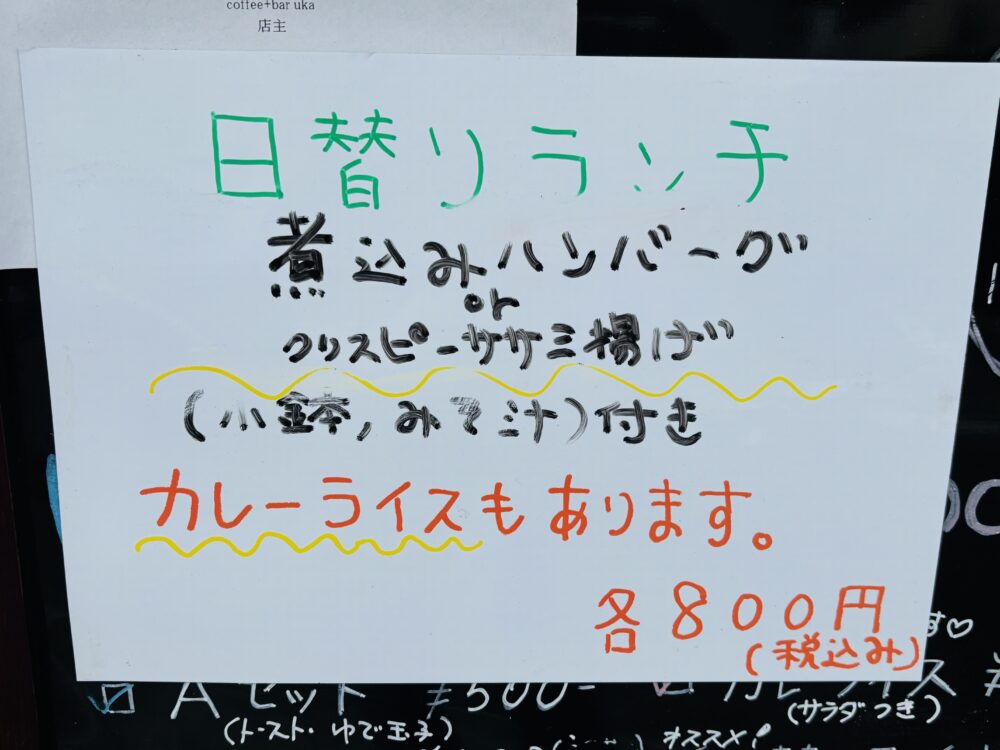 coffee+bar uka
店主
日替りランチ
煮込みハンバーグ
or
クリスピーササミ揚げ
(小鉢,みそ汁)付き
カレーライスもあります。
各800円
(税込み)
す♡
Aセット ¥500- カレーライス ¥
(トースト・ゆで玉子)
(サラダつき)
オススメ!